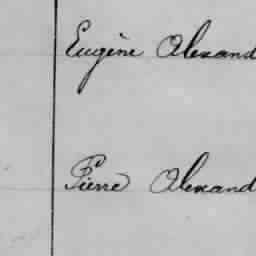 Eugène Alexand
Pierre Alexand